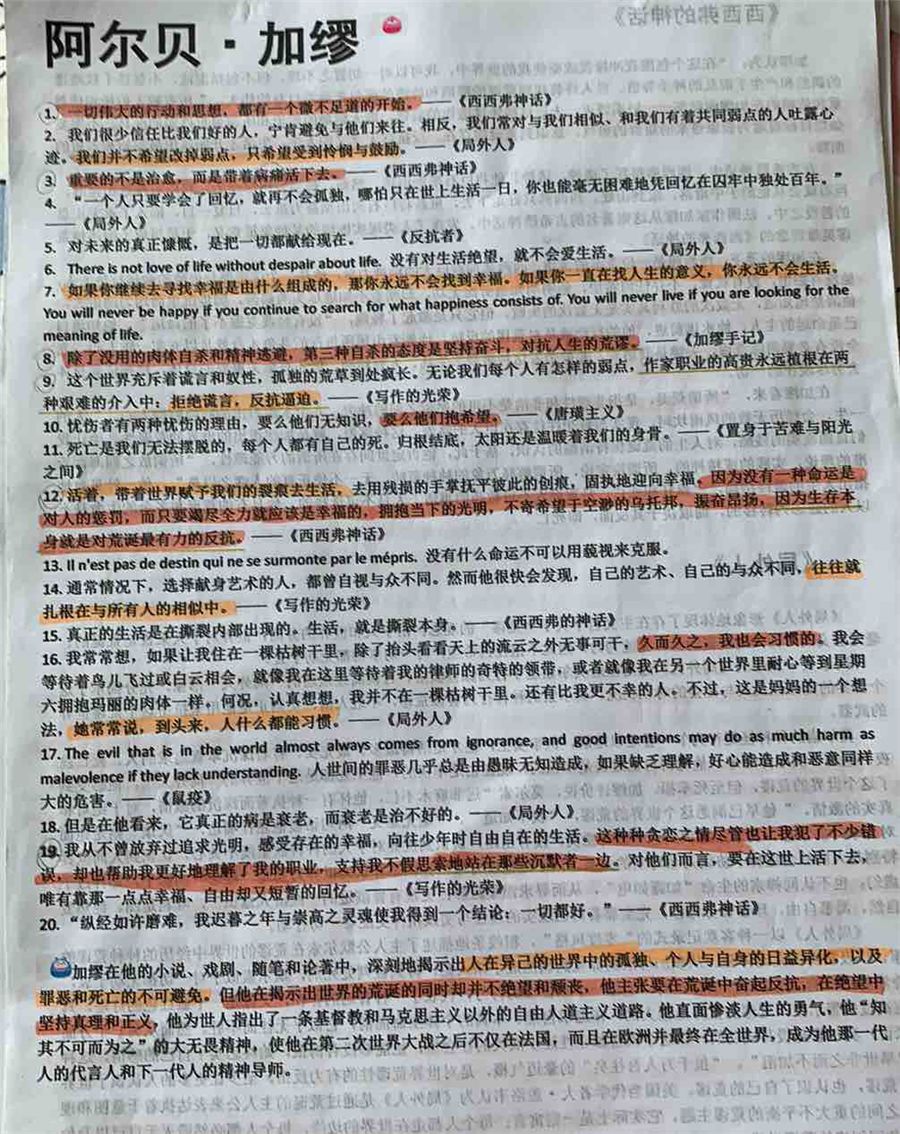 阿尔贝·加缪
1. 一切伟大的行动和思想，都有一个微不足道的开始。——《西西弗神话》
2. 我们很少信任比我们好的人，宁肯避免与他们来往。相反，我们常对与我们相似、和我们有着共同弱点的人吐露心
迹。我们并不希望改掉弱点，只希望受到怜悯与鼓励。——《局外人》
3. 重要的不是治愈，而是带着病痛活下去。——《西西弗神话》
4. “一个人只要学会了回忆，就再不会孤独，哪怕只在世上生活一日，你也能毫无困难地凭回忆在囚牢中独处百年。”
——《局外人》
5. 对未来的真正慷慨，是把一切都献给现在。——《反抗者》
6. There is not love of life without despair about life. 没有对生活绝望，就不会爱生活。——《局外人》
7. 如果你继续去寻找幸福是由什么组成的，那你永远不会找到幸福。如果你一直在找人生的意义，你永远不会生活。
You will never be happy if you continue to search for what happiness consists of. You will never live if you are looking for the
meaning of life.
8. 除了没用的肉体自杀和精神逃避，第三种自杀的态度是坚持奋斗，对抗人生的荒谬。——《加缪手记》
9. 这个世界充斥着谎言和奴性，孤独的荒草到处疯长。无论我们每个人有怎样的弱点，作家职业的高贵永远植根在两
种艰难的介入中：拒绝谎言，反抗逼迫。——《写作的光荣》
10. 忧伤者有两种忧伤的理由，要么他们无知识，要么他们抱希望。——《唐璜主义》
11. 死亡是我们无法摆脱的，每个人都有自己的死。归根结底，太阳还是温暖着我们的身骨。——《置身于苦难与阳光
之间》
12. 活着，带着世界赋予我们的裂痕去生活，去用残损的手掌抚平彼此的创痕，固执地迎向幸福，因为没有一种命运是
对人的惩罚，而只要竭尽全力就应该是幸福的，拥抱当下的光明，不寄希望于空渺的乌托邦，振奋昂扬，因为生存本
身就是对荒诞最有力的反抗。——《西西弗神话》
13. Il n'est pas de destin qui ne se surmonte par le mépris. 没有什么命运不可以用藐视来克服。
14. 通常情况下，选择献身艺术的人，都曾自视与众不同。然而他很快会发现，自己的艺术、自己的与众不同，往往就
扎根在与所有人的相似中。——《写作的光荣》
15. 真正的生活是在撕裂内部出现的。生活，就是撕裂本身。——《西西弗的神话》
16. 我常常想，如果让我住在一棵枯树干里，除了抬头看看天上的流云之外无事可干，久而久之，我也会习惯的。我会
等待着鸟儿飞过或白云相会，就像我在这里等待着我的律师的奇特的领带，或者就像我在另一个世界里耐心等到星期
六拥抱玛丽的肉体一样。何况，认真想想，我并不在一棵枯树干里。还有比我更不幸的人。不过，这是妈妈的一个想
法，她常常说，到头来，人什么都能习惯。——《局外人》
17. The evil that is in the world almost always comes from ignorance, and good intentions may do as much harm as
malevolence if they lack understanding. 人世间的罪恶几乎总是由愚昧无知造成，如果缺乏理解，好心能造成和恶意同样
大的危害。——《鼠疫》
18. 但是在他看来，它真正的病是衰老，而衰老是治不好的。——《局外人》
19. 我从不曾放弃过追求光明，感受存在的幸福，向往少年时自由自在的生活。这种种贪恋之情尽管也让我犯了不少错
误，却也帮助我更好地理解了我的职业，支持我不假思索地站在那些沉默者一边。对他们而言，要在这世上活下去，
唯有靠那一点点幸福、自由却又短暂的回忆。——《写作的光荣》
20. “纵经如许磨难，我迟暮之年与崇高之灵魂使我得到一个结论：一切都好。”——《西西弗神话》
加缪在他的小说、戏剧、随笔和论著中，深刻地揭示出人在异己的世界中的孤独、个人与自身的日益异化，以及
罪恶和死亡的不可避免。但他在揭示出世界的荒诞的同时却并不绝望和颓丧，他主张要在荒诞中奋起反抗，在绝望中
坚持真理和正义，他为世人指出了一条基督教和马克思主义以外的自由人道主义道路。他直面惨淡人生的勇气，他“知
其不可而为之”的大无畏精神，使他在第二次世界大战之后不仅在法国，而且在欧洲并最终在全世界，成为他那一代
人的代言人和下一代人的精神导师。